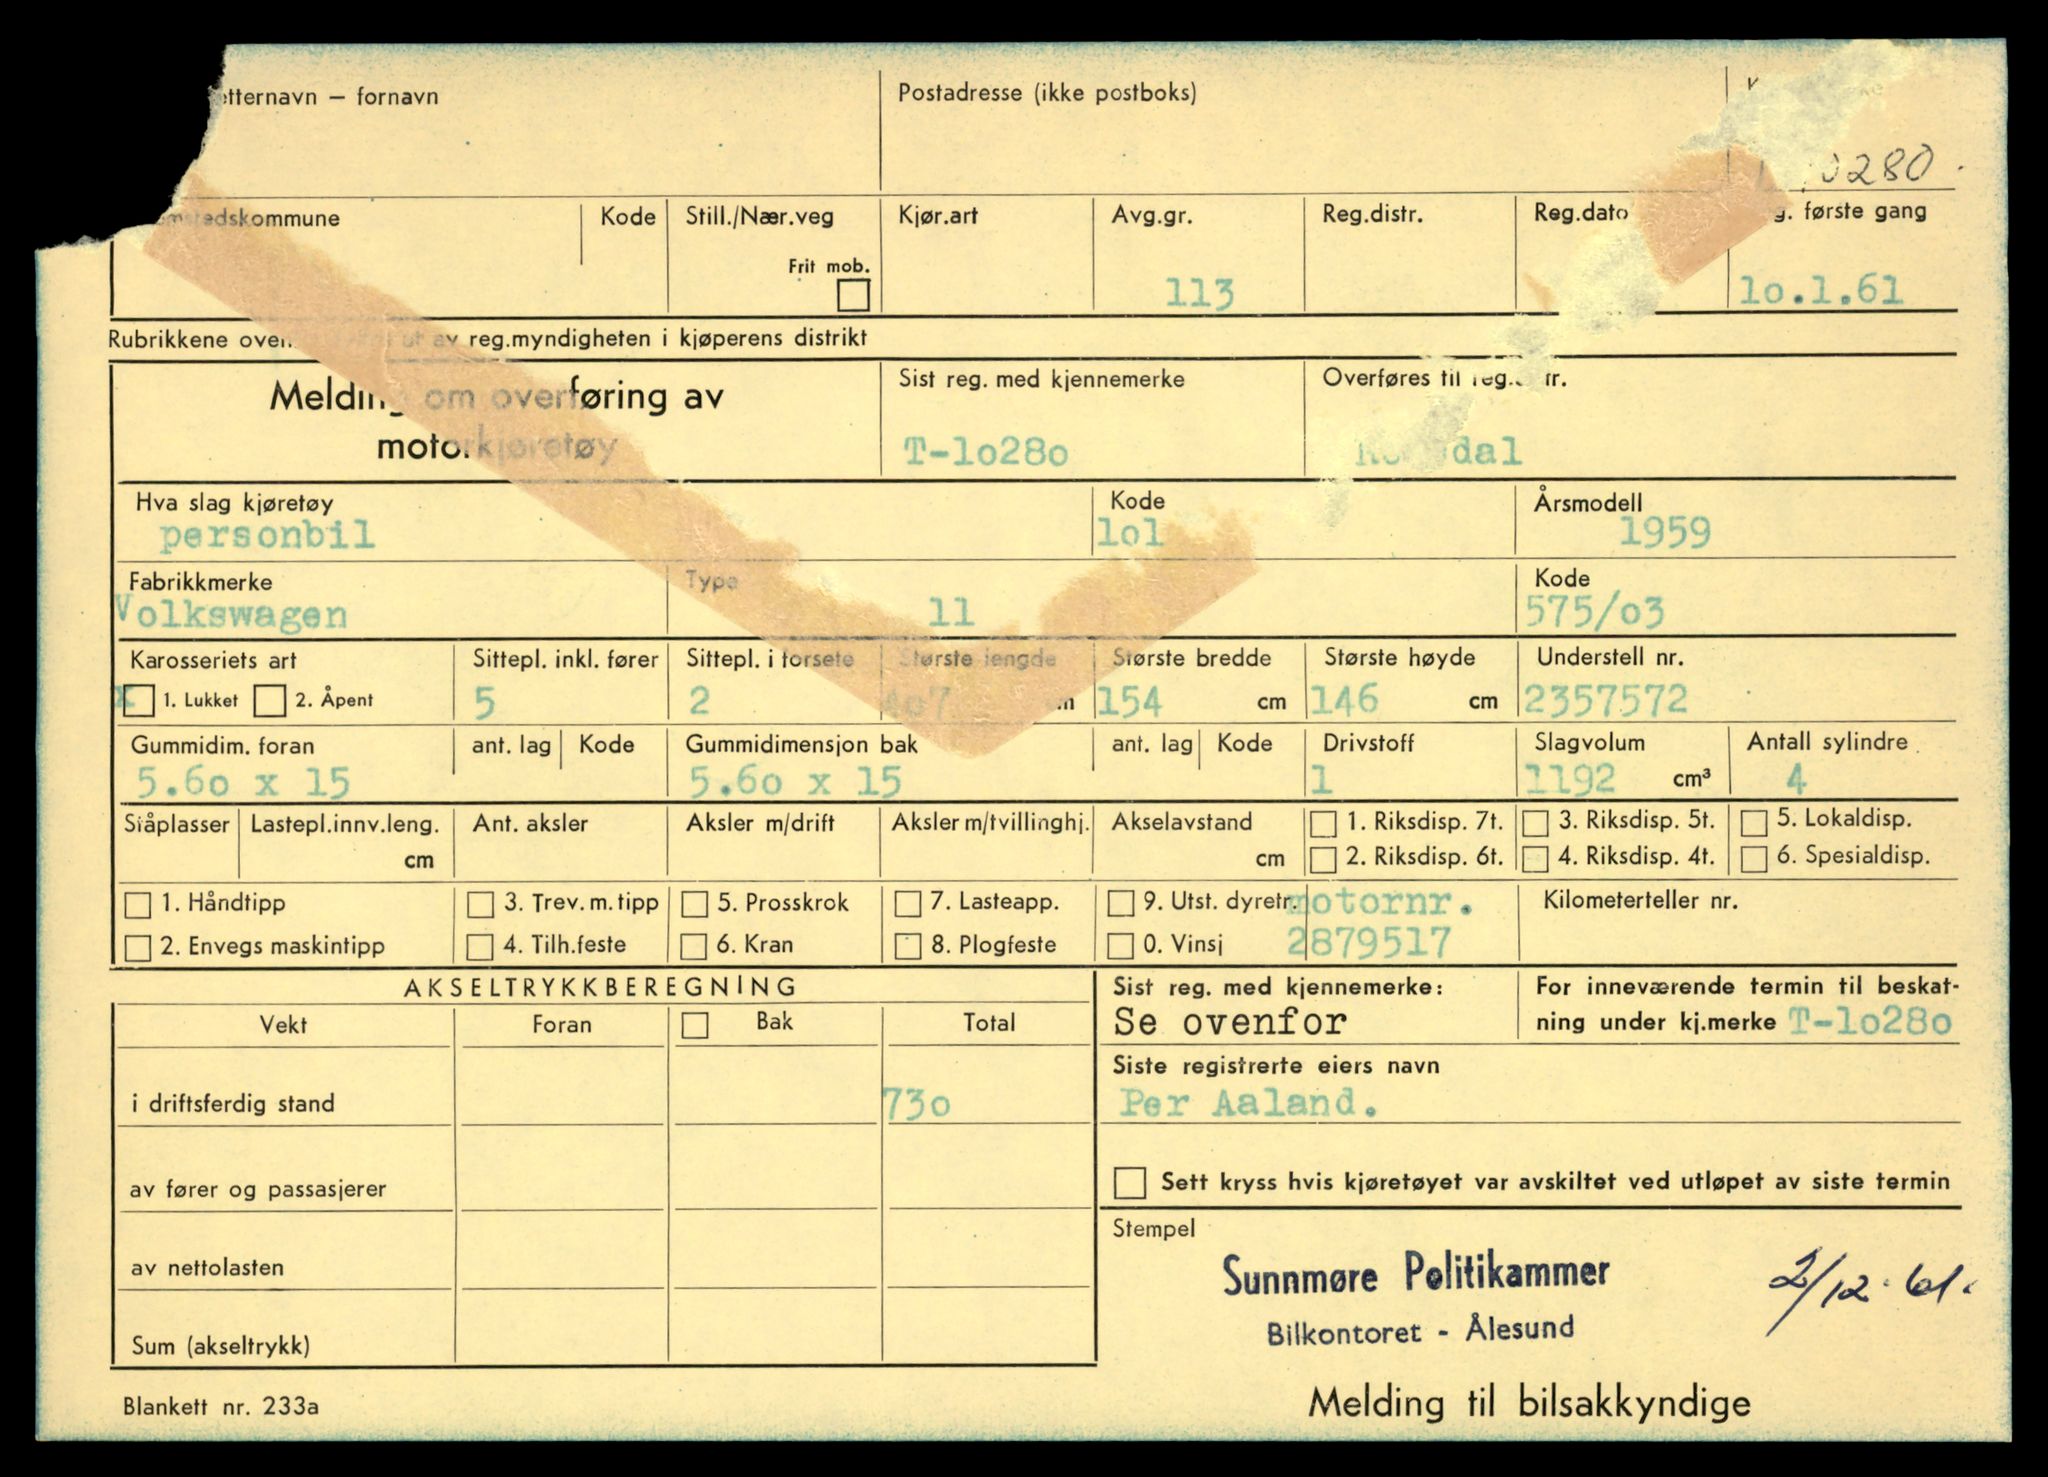 etternavn – fornavn Postadresse (ikke postboks)
0280.
omstedskommune Kode Still./Nær.veg Kjør.art Avg.gr. Reg.distr. Reg.dato g. første gang
Frit mob.
113 1o.1.61
Rubrikkene oven ut av reg.myndigheten i kjøperens distrikt
Melding om overføring av
motorkjøretøy
Sist reg. med kjennemerke Overføres til reg.
T-1o28o dal
Hva slag kjøretøy Kode Årsmodell
personbil 1o1 1959
Fabrikkmerke Type Kode
Volkswagen 11 575/o3
Karosseriets art Sittepl. inkl. fører Sittepl. i forsete Største lengde Største bredde Største høyde Understell nr.
x 1. Lukket 2. Åpent 5 2 4o7 cm 154 cm 146 cm 2357572
Gummidim. foran ant. lag Kode Gummidimensjon bak ant. lag Kode Drivstoff Slagvolum Antall sylindre
5.6o x 15 5.6o x 15 1 1192 cm³ 4
Ståplasser Lastepl.innv.leng. Ant. aksler Aksler m/drift Aksler m/tvillinghj. Akselavstand 1. Riksdisp. 7t. 3. Riksdisp. 5t. 5. Lokaldisp.
cm cm 2. Riksdisp. 6t. 4. Riksdisp. 4t. 6. Spesialdisp.
1. Håndtipp 3. Trev. m. tipp 5. Prosskrok 7. Lasteapp. 9. Utst. dyretr. motornr. Kilometerteller nr.
2. Envegs maskintipp 4. Tilh.feste 6. Kran 8. Plogfeste 0. Vinsj 2879517
AKSELTRYKKBEREGNING Sist reg. med kjennemerke: For inneværende termin til beskat-
Vekt Foran Bak Total Se ovenfor ning under kj.merke T-1o28o
Siste registrerte eiers navn
i driftsferdig stand 73o Per Aaland.
av fører og passasjerer Sett kryss hvis kjøretøyet var avskiltet ved utløpet av siste termin
Stempel
av nettolasten Sunnmøre Politikammer 2/12.61.
Sum (akseltrykk) Bilkontoret - Ålesund
Blankett nr. 233a Melding til bilsakkyndige